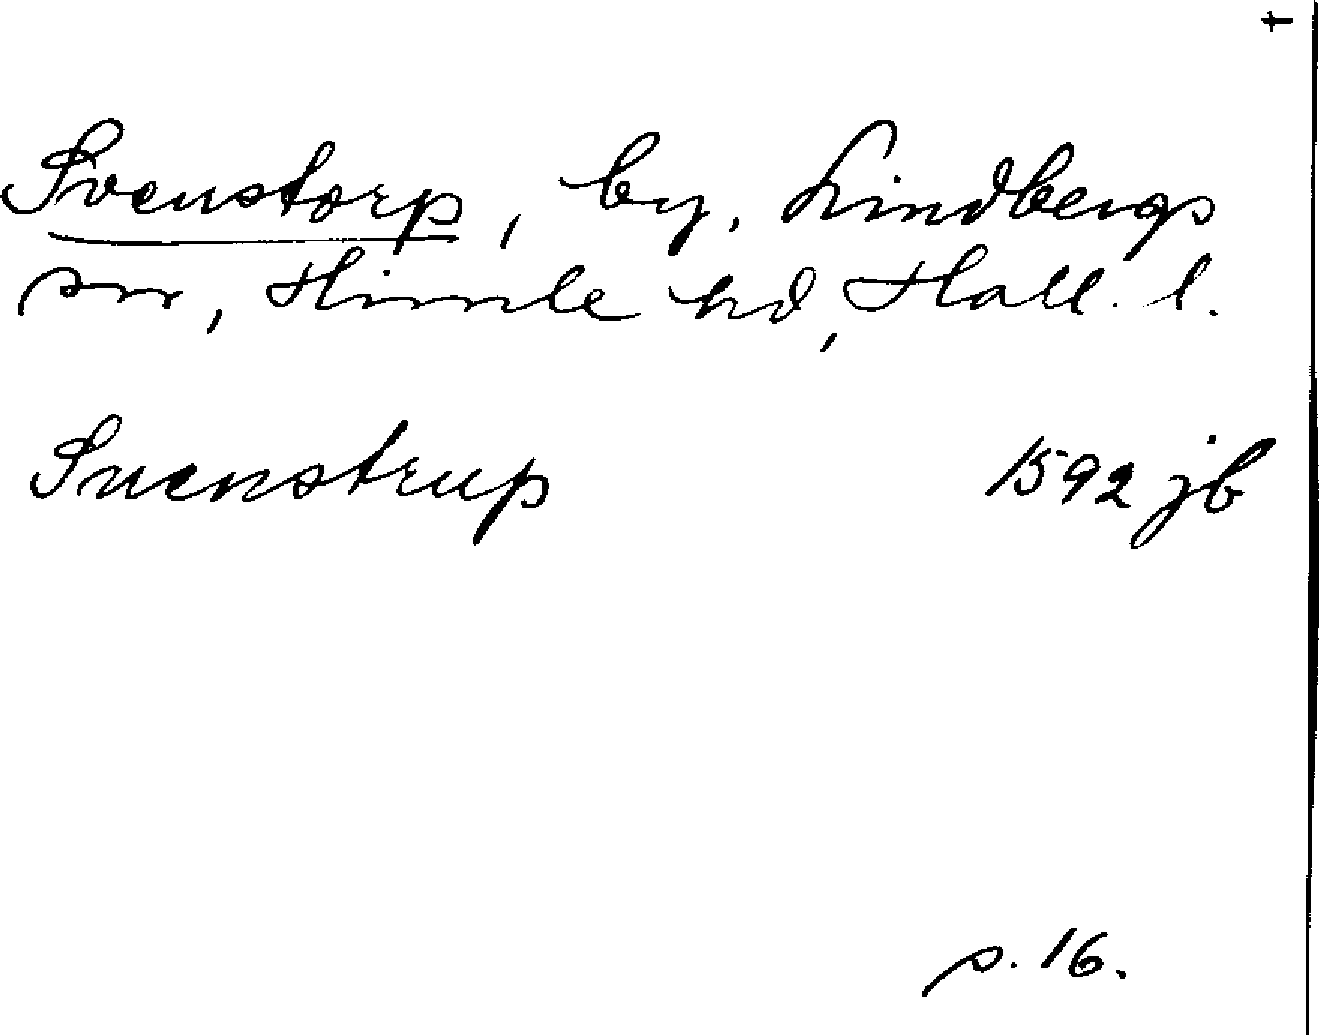 Svenstorp, by, Lindbergs
sn, Himle hd, Hall. l.
Suenstrup 1592 jb
s. 16.